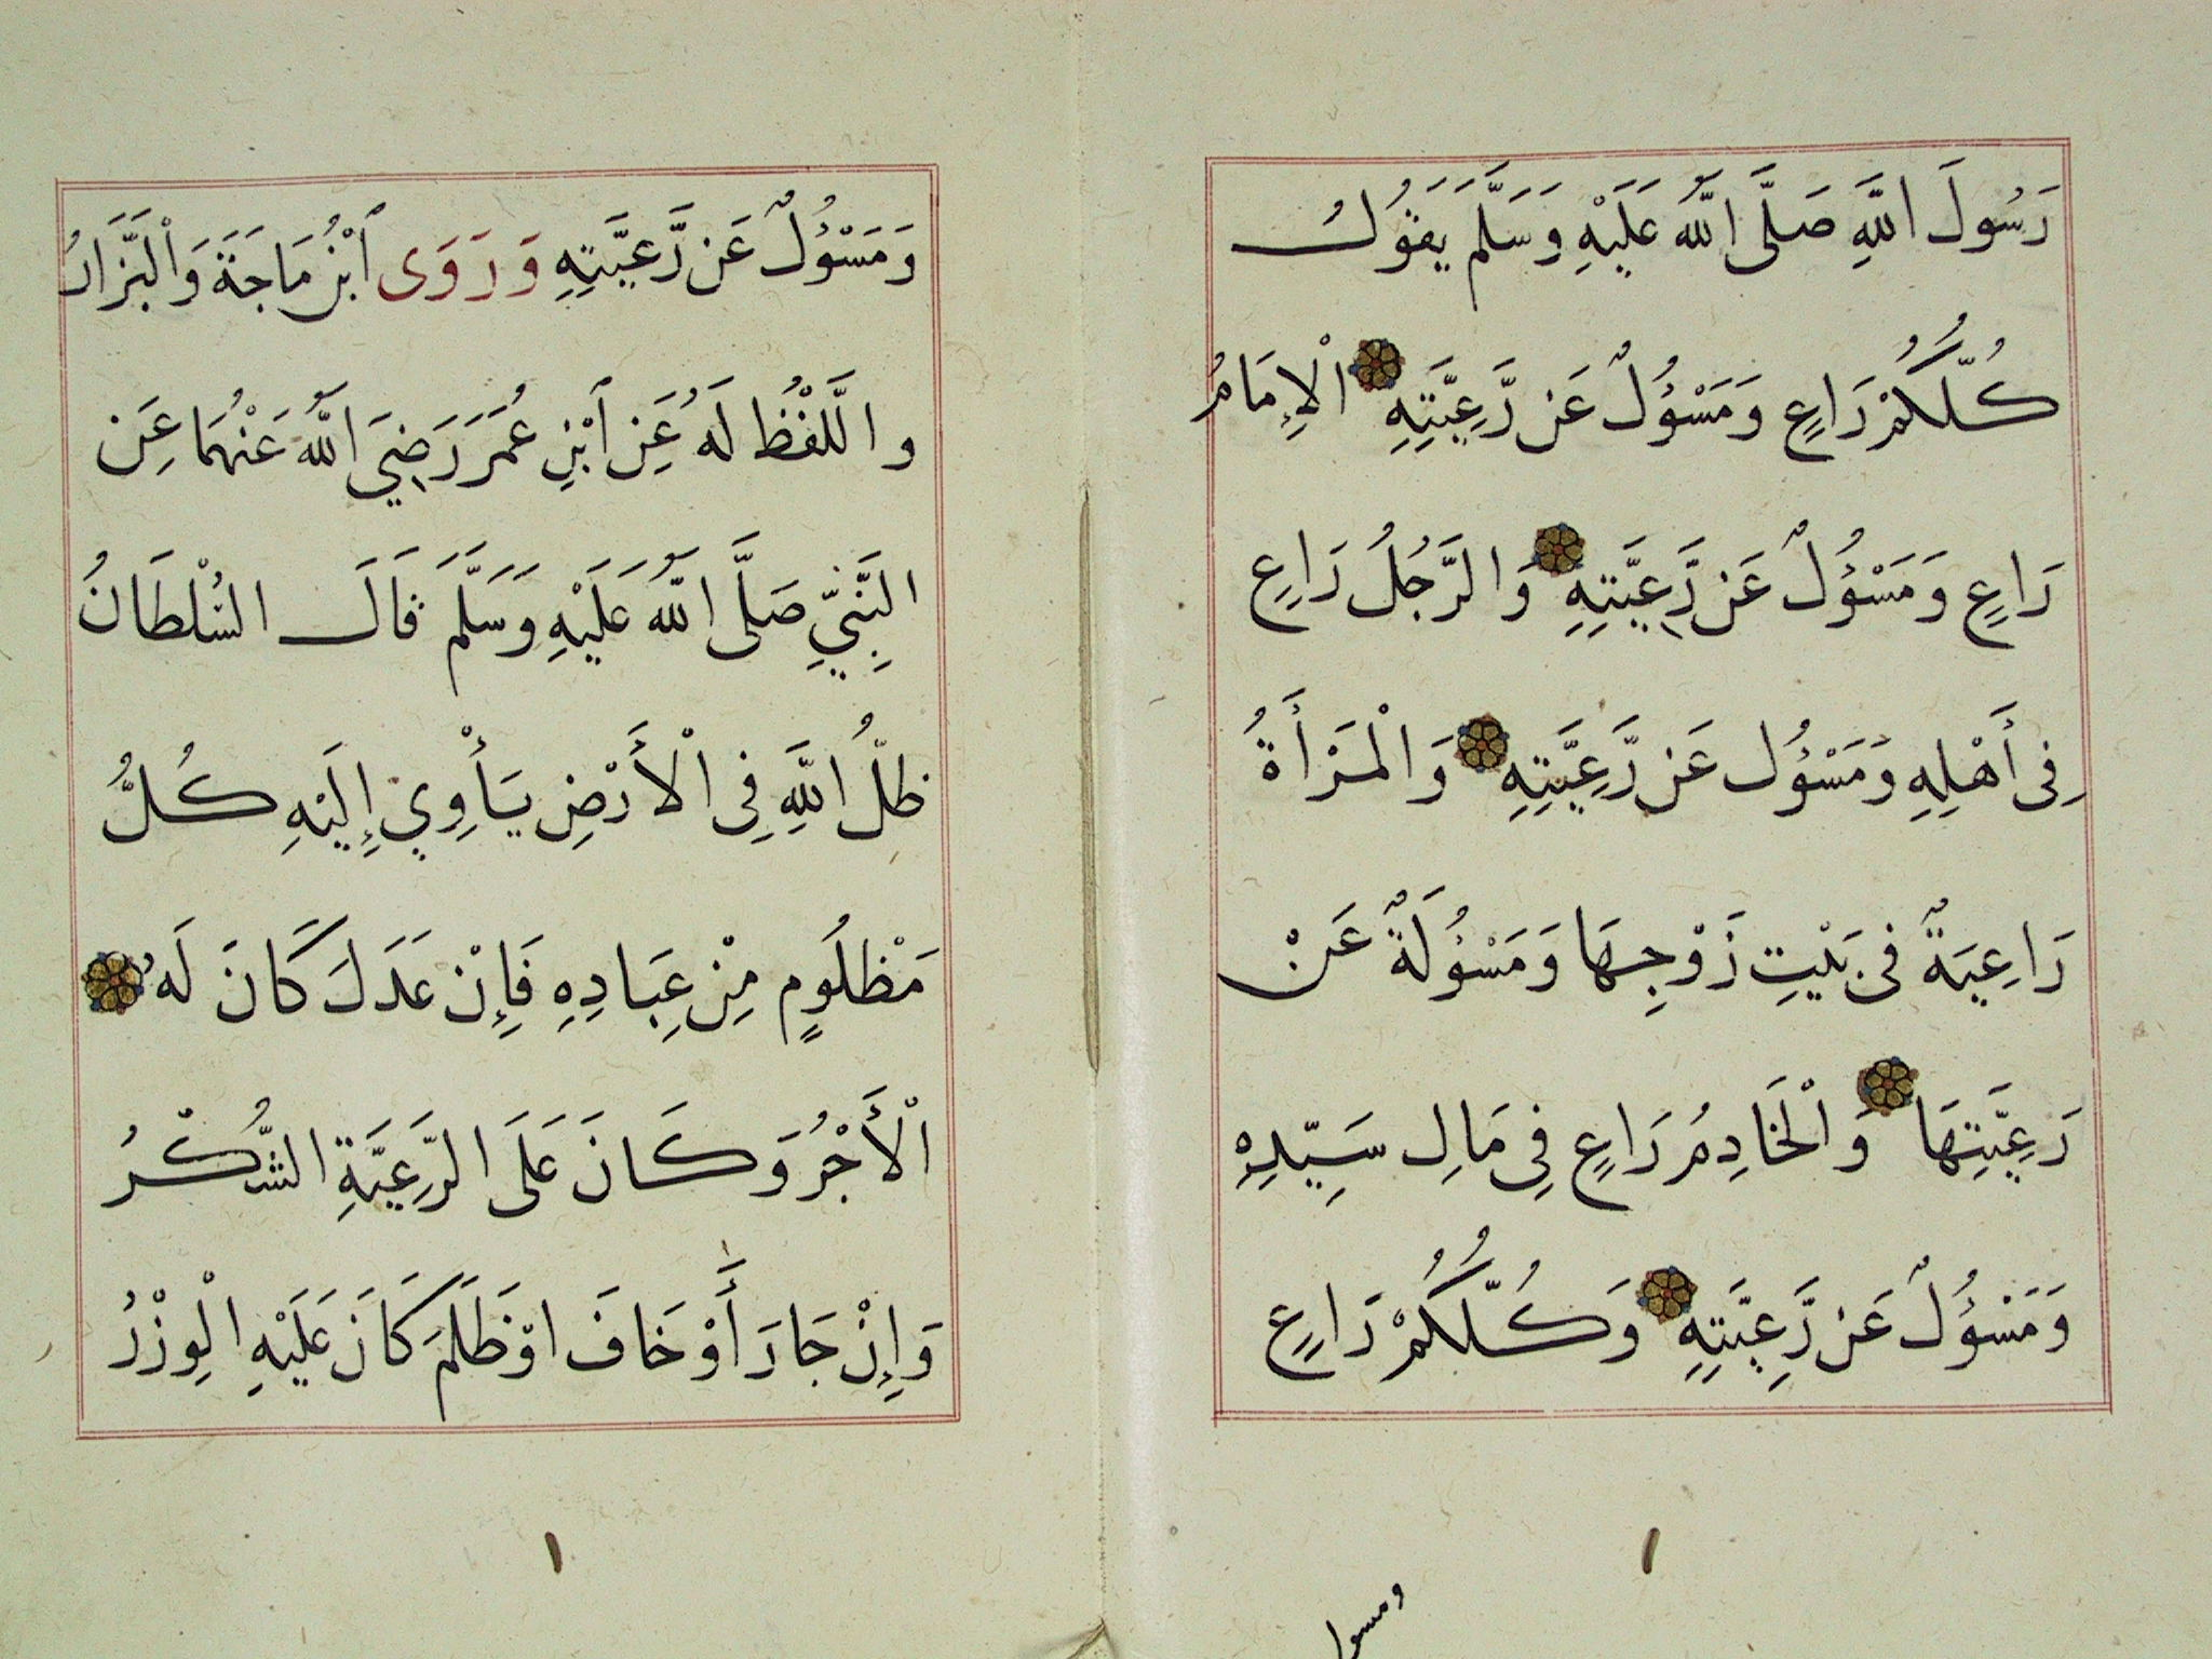 رَسُولَ اللَّهِ صَلَّى اللَّهُ عَلَيْهِ وَسَلَّمَ يَقُولُ
كُلُّكُمْ رَاعٍ وَمَسْؤُلٌ عَن رَّعِيَّتِهِ الْإِمَامُ
رَاعٍ وَمَسْؤُلٌ عَن رَّعِيَّتِهِ وَالرَّجُلُ رَاعٍ
فِى أَهْلِهِ وَمَسْؤُل عَن رَّعِيَّتِهِ وَالْمَرْأَةُ
رَاعِيَةٌ فِى بَيْتِ زَوْجِهَا وَمَسْؤُلَةٌ عَنْ
رَعِيَّتِهَا وَالْخَادِمُ رَاعٍ فِى مَالِ سَيِّدِهِ
وَمَسْؤُلٌ عَن رَّعِيَّتِهِ وَكُلُّكُمْ رَاعٍ
ومسول
وَمَسْؤُلٌ عَن رَّعِيَّتِهِ وَرَوَى ٱبْنُ مَاجَةَ وَالْبَزَّارُ
واللَّفْظُ لَهُ عَنِ ٱبْنِ عُمَرَ رَضِيَ اللَّهُ عَنْهُمَا عَنِ
النَّبِيِّ صَلَّى اللَّهُ عَلَيْهِ وَسَلَّمَ قَالَ السُّلْطَانُ
ظِلُّ اللَّهِ فِى الْأَرْضِ يَأْوِي إِلَيْهِ كُلُّ
مَظْلُومٍ مِنْ عِبَادِهِ فَإِنْ عَدَلَ كَانَ لَهُ
الْأَجْرُ وَكَانَ عَلَى الرَّعِيَّةِ الشُّكْرُ
وَإِنْ جَارَ أَوْ خَافَ اوْ ظَلَمَ كَانَ عَلَيْهِ الْوِزْرُ
١
١